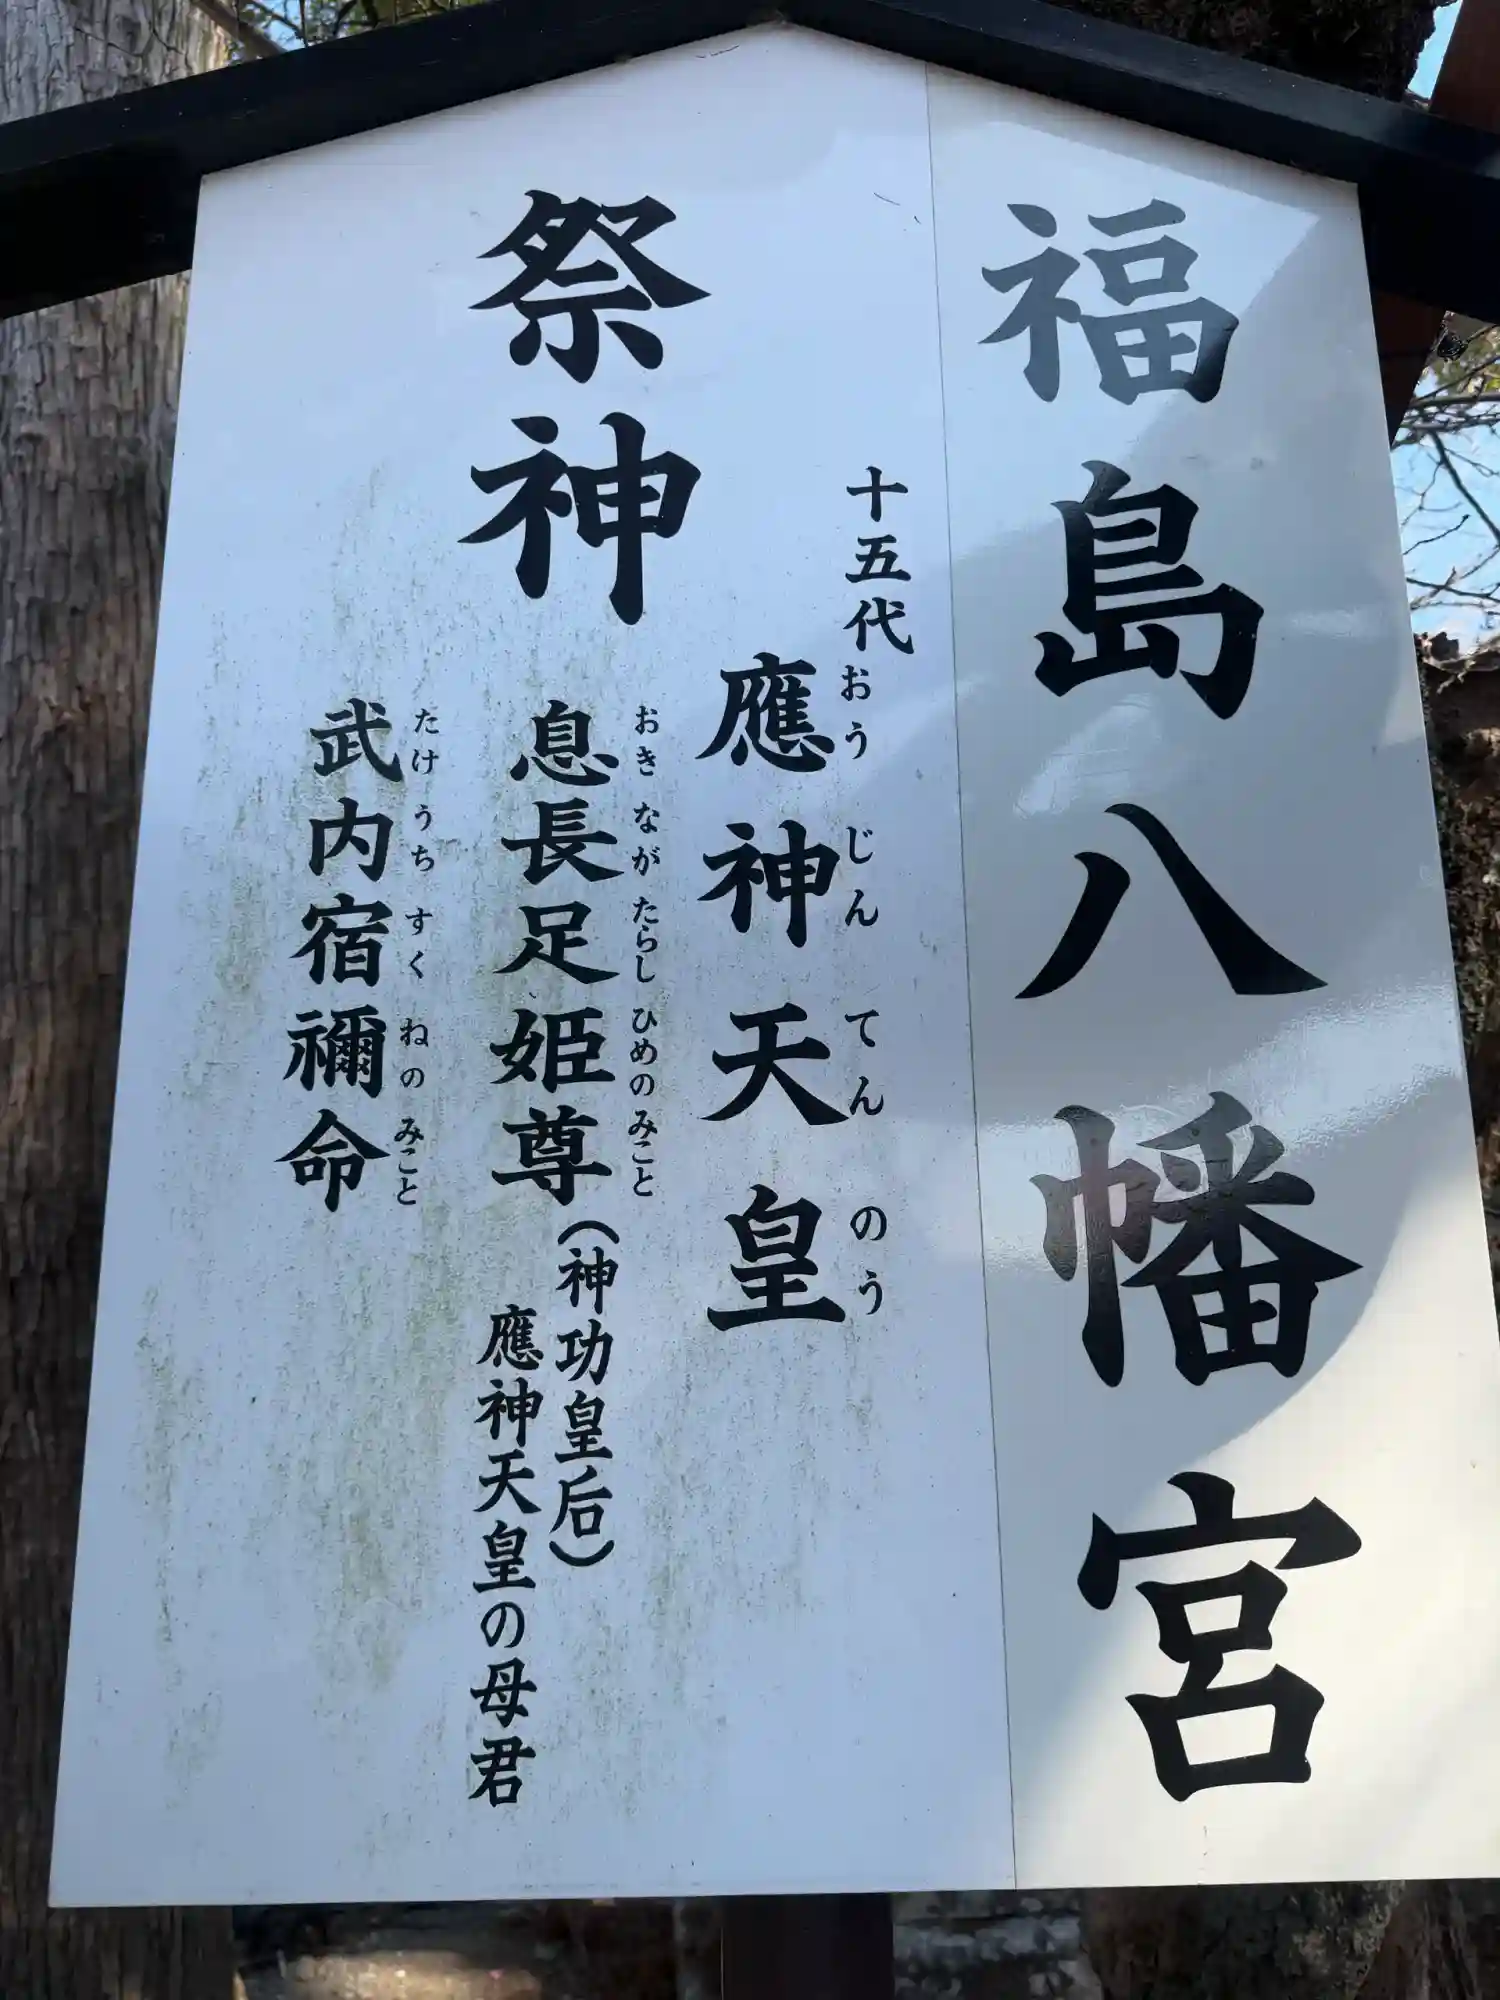 福島八幡宮
十五代
應神天皇
おうじんてんのう
祭神
息長足姫尊(神功皇后)
おきながたらしひめのみこと
應神天皇の母君
武内宿禰命
たけうちすくねのみこと